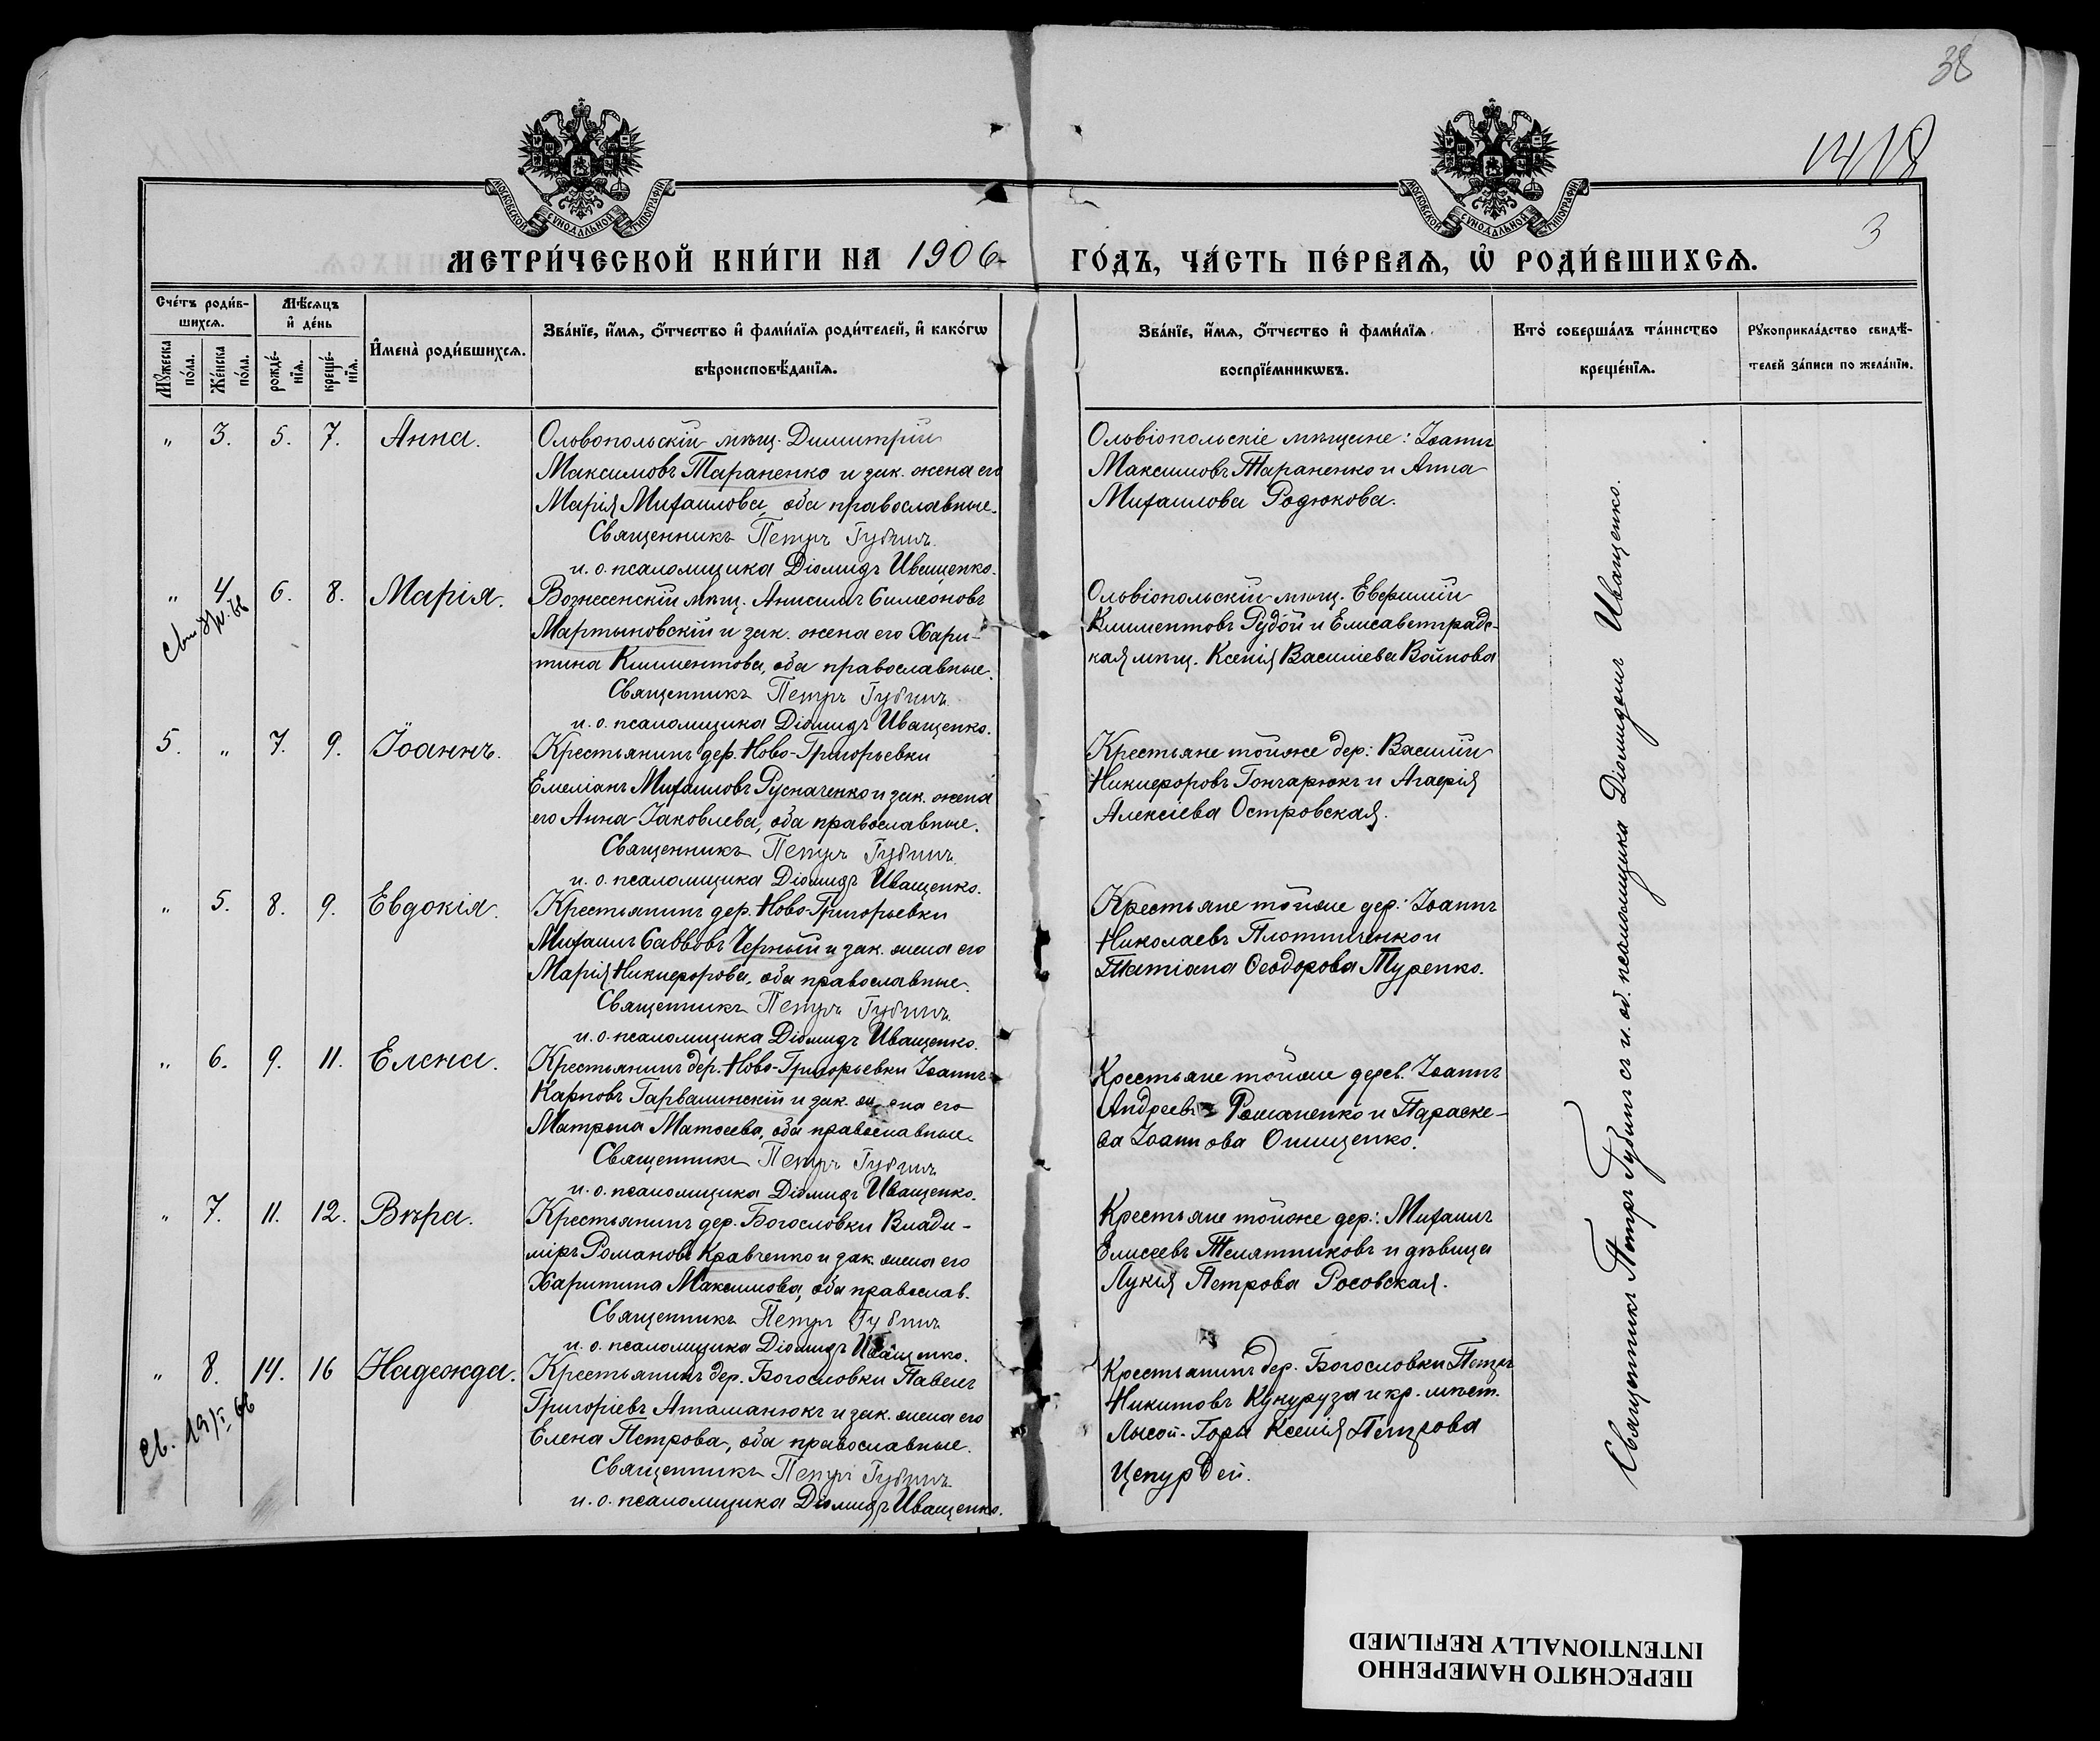 38
1418
3
МОСКОВСКОЙ СѴНОДАЛЬНОЙ ТИПОГРАФІИ
МОСКОВСКОЙ СѴНОДАЛЬНОЙ ТИПОГРАФІИ
МЕТРИ́ЧЕСКОЙ КНИ́ГИ НА 1906 ГО́ДЪ, ЧА́СТЬ ПЕ́РВАѦ, Ѽ РОДИ́ВШИХСѦ.
Сче́тъ роди́вшихсѧ.
Мꙋ́жеска по́ла.
Же́нска по́ла.
Мѣ́сѧцъ и҆ де́нь
рожде́нїѧ.
креще́нїѧ.
И҆мена̀ роди́вшихсѧ.
Зва́нїе, и҆́мѧ, ѻ҆́тчество и҆ фами́лїѧ роди́телей, и҆ како́гѡ
вѣроисповѣ́данїѧ.
Зва́нїе, и҆́мѧ, ѻ҆́тчество и҆ фами́лїѧ
воспрїе́мникѡвъ.
Кто̀ соверша́лъ та́инство
креще́нїѧ.
Рꙋкоприкла́дство свидѣ́телей за́писи по жела́нїю.
„ 3. 5. 7. Анна.
Оловопольскій мѣщ. Димитрій
Максимовъ Тараненко и зак. жена его
Марія Михаилова, оба православные.
Священникъ Петръ Губинъ.
и. о. псаломщика Діомидъ Иващенко.
Ольвіопольскіе мѣщане: Іоаннъ
Максимовъ Тараненко и Анна
Михаилова Родюкова.
„ 4. 6. 8. Марія.
Вознесенскій мѣщ. Анисимъ Симеоновъ
Мартыновскій и зак. жена его Хари-
тина Климентова, оба православные.
Священникъ Петръ Губинъ.
и. о. псаломщика Діомидъ Иващенко.
Ольвіопольскій мѣщ. Евфимій
Климентовъ Рудой и Елисаветградс-
кая мѣщ. Ксенія Василіева Войнова
5. „ 7. 9. Іоаннъ.
Крестьянинъ дер. Ново-Григорьевки
Емеліанъ Михаиловъ Русначенко и зак. жена
его Анна Іаковлева, оба православные.
Священникъ Петръ Губинъ.
и. о. псаломщика Діомидъ Иващенко.
Крестьяне тойже дер: Василій
Никифоровъ Гончарюкъ и Агафія
Алексіева Островская.
„ 5. 8. 9. Евдокія.
Крестьянинъ дер. Ново-Григорьевки
Михаилъ Саввовъ Черный и зак. жена его
Марія Никифорова, оба православные.
Священникъ Петръ Губинъ.
и. о. псаломщика Діомидъ Иващенко.
Крестьяне тойже дер: Іоаннъ
Николаевъ Плотниченко и
Татіана Ѳеодорова Туренко.
„ 6. 9. 11. Елена.
Крестьянинъ дер. Ново-Григорьевки Іоаннъ
Карповъ Гарвалинскій и зак. жена его
Матрона Матѳеева, оба православные.
Священникъ Петръ Губинъ
и. о. псаломщика Діомидъ Иващенко.
Крестьяне тойже дерев. Іоаннъ
Андреевъ Романенко и Параске-
ва Іоаннова Онищенко.
„ 7. 11. 12. Вѣра.
Крестьянинъ дер. Богословки Влади-
міръ Романовъ Кравченко и зак. жена его
Харитина Максимова, оба православ.
Священникъ Петръ Губинъ
и. о. псаломщика Діомидъ Иващенко.
Крестьяне тойже дер: Михаилъ
Елисеевъ Телятниковъ и дѣвица
Лукія Петрова Росовская.
„ 8. 14. 16 Надежда.
Крестьянинъ дер. Богословки Павелъ
Григоріевъ Атаманюкъ и зак. жена его
Елена Петрова, оба православные.
Священникъ Петръ Губинъ.
и. о. псаломщика Діомидъ Иващенко.
Крестьянинъ дер. Богословки Петръ
Никитовъ Кукуруза и кр. мѣст.
Лысой-Горы Ксенія Петрова
Цепурдей.
Св. 19/I 66
Священникъ Петръ Губинъ съ и. об. псаломщика Діомидомъ Иващенко.
ПЕРЕСНЯТО НАМЕРЕННО
INTENTIONALLY REFILMED